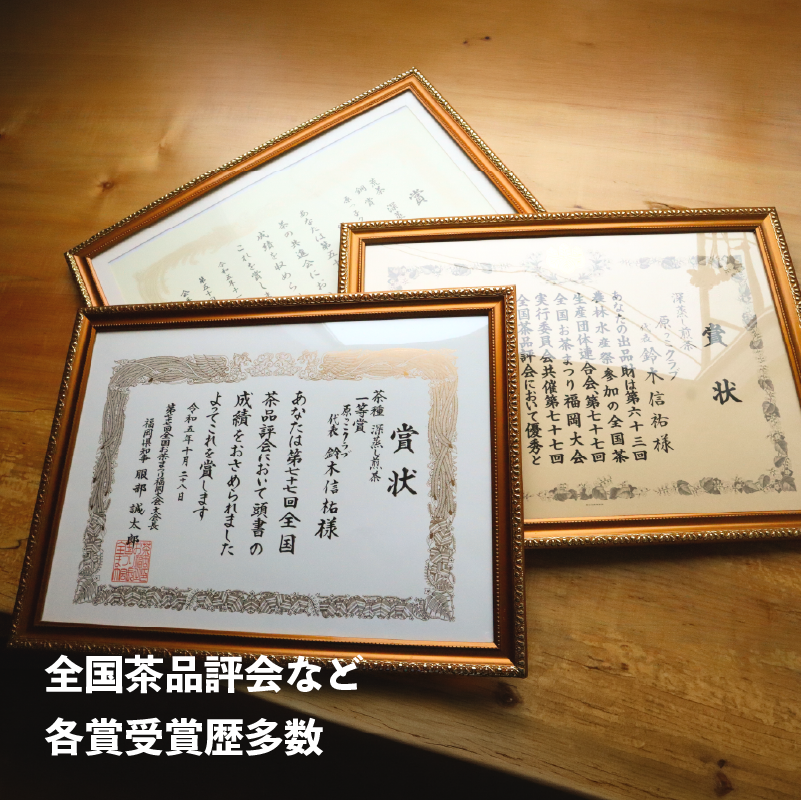 賞
深蒸
あなたは第五
茶の共進会にお
成績を収めら
これを賞しま
令和
賞状
深蒸し煎茶
原っこクラブ
代表 鈴木信祐様
あなたの出品財は第六十三回
農林水産祭参加の全国茶
生産団体連合会、第七十七回
全国お茶まつり福岡大会
実行委員会共催第七十七回
全国茶品評会において優秀と
賞状
茶種 深蒸し煎茶
一等賞
原っこクラブ
代表 鈴木信祐様
あなたは第七十七回全国
茶品評会において頭書の
成績をおさめられました
よってこれを賞します
令和五年十月二十八日
第七十七回全国お茶まつり福岡大会会長
福岡県知事 服部誠太郎
全国茶品評会など
各賞受賞歴多数